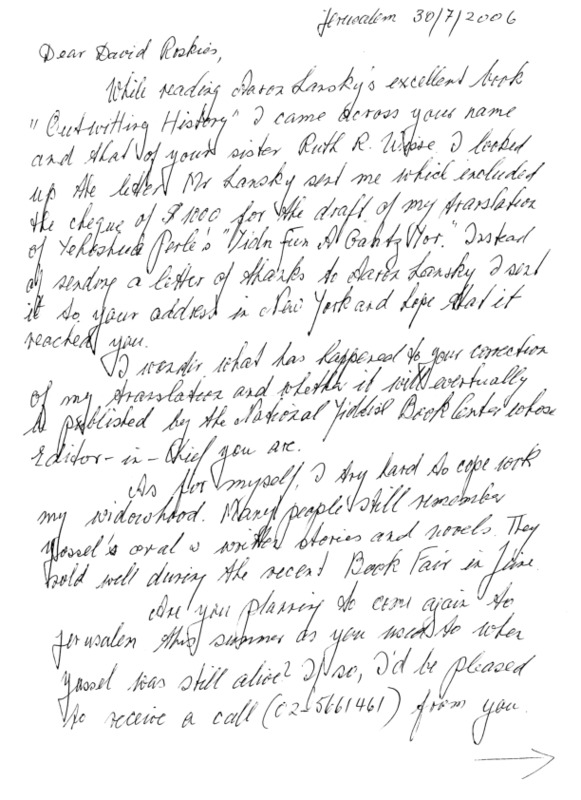 Jerusalem 30/7/2006
Dear David Roskies,
While reading Aaron Lansky's excellent book
"Outwitting History" I came across your name
and that of your sister Ruth R. Wisse. I looked
up the letter Mr Lansky sent me which included
the cheque of $1000 for the draft of my translation
of Yehoshua Perle's "Yidn Fun A Gantz Yor." Instead
of sending a letter of thanks to Aaron Lansky I sent
it to your address in New York and hope that it
reached you.
I wonder what has happened to your correction
of my translation and whether it will eventually
be published by the National Yiddish Book Center whose
Editor-in-Chief you are.
As for myself, I try hard to cope with
my widowhood. Many people still remember
Yossel's oral & written stories and novels. They
sold well during the recent Book Fair in June.
Are you planning to come again to
Jerusalem this summer as you used to when
Yossel was still alive? If so, I'd be pleased
to receive a call (02-5661461) from you.